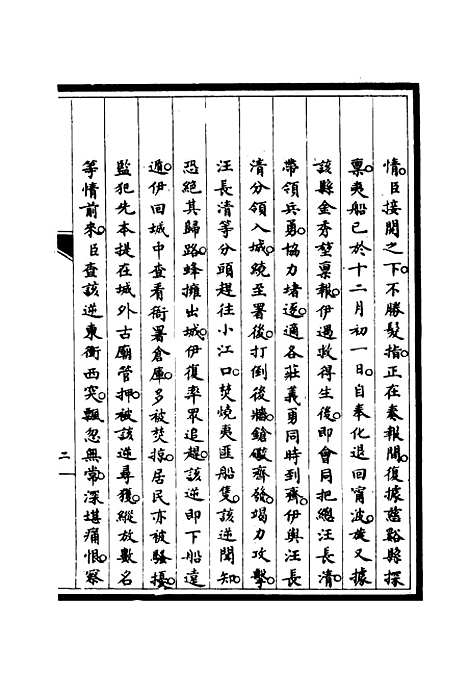 情。臣接閱之下。不勝髮指。正在奏報間。復據慈谿縣探
稟。夷船已於十二月初一日。自奉化退回甯波。旋又據
該縣金秀堃稟報。伊遇救得生後。即會同把總汪長清
帶領兵勇。協力堵逐。適各莊義勇同時到齊。伊與汪長
清分領入城。繞至署後。打倒後牆。鎗礮齊發。竭力攻擊。
汪長清等分頭趕往小江口。焚燒夷匪船隻。該逆聞知。
恐絕其歸路。蜂擁出城。伊復率眾追趕。該逆即下船遠
遁。伊回城中查看。衙署倉庫。多被焚掠。居民亦被騷擾。
監犯先本提在城外古廟管押。被該逆尋獲。縱放數名
等情前來。臣查該逆東衝西突。飄忽無常。深堪痛恨。察
二